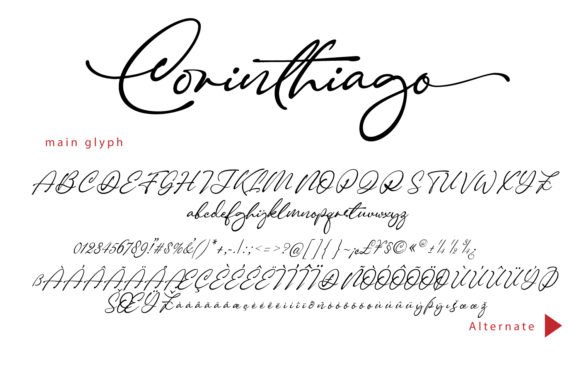 Corinthiago
main glyph
ABCDEFGHIJKLMNOPQRSTUVWXYZ
abcdefghijklmnopqrstuvwxyz
0123456789!"#$%&'()*+,-./:;<=>?@[]{}~¡¢£¥§©«®±¼½¾¿
ßÀÁÂÃÄÅÆÇÈÉÊËÌÍÎÏÐÑÒÓÔÕÖØÙÚÛÜÝÞ
ŠŒŸŽàáâãäåæçèéêëìíîïðñòóôõöøùúûüýþÿıšœž
Alternate